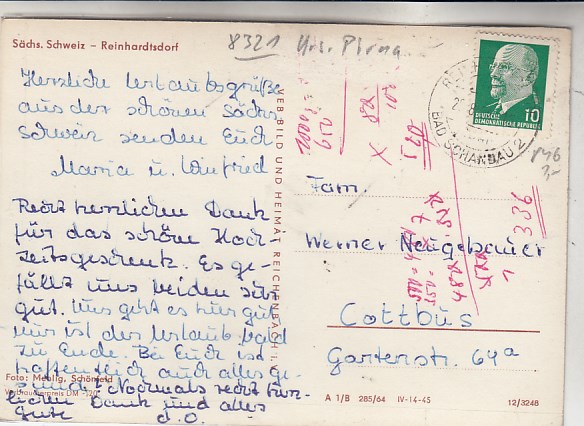 Sächs. Schweiz – Reinhardtsdorf
8321 Krs. Pirna
Herzliche Urlaubsgrüße
aus der schönen Sächs.
Schweiz senden Euch
Maria u. Winfried
Recht herzlichen Dank
für das schöne Hoch-
zeitsgeschenk. Es ge-
fällt uns beiden sehr
gut. Uns geht es sehr gut
nur ist der Urlaub bald
zu Ende. Bei Euch ist
hoffentlich auch alles ge-
sund. Nochmals recht herz-
lichen Dank und alles
Gute d. O.
Foto: Meußig, Schönfeld
Verbraucherpreis DM -,20
VEB BILD UND HEIMAT REICHENBACH I. V.
10
DEUTSCHE
DEMOKRATISCHE REPUBLIK
BAD SCHANDAU 2
Fam.
Werner Neugebauer
Cottbus
Gartenstr. 64a
336
A 1/B 285/64 IV-14-45
12/3248